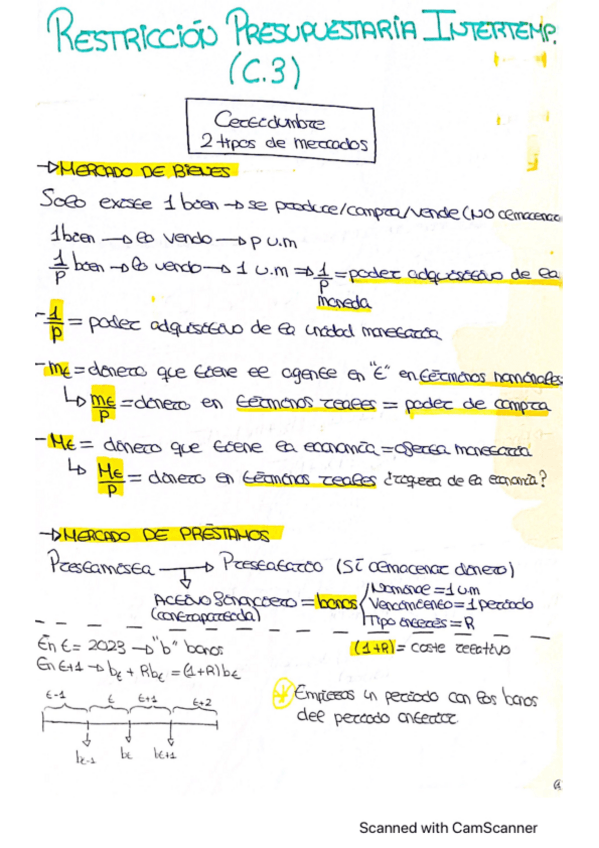 RESTRICCIÓN PRESUPUESTARIA INTERTEMP.
(C.3)
Certidumbre
2 tipos de mercados
→ MERCADO DE BIENES
Solo existe 1 bien → se produce/compra/vende (NO almacenar
1 bien → lo vendo → p u.m
1/P bien → lo vendo → 1 u.m ⇒ 1/P = poder adquisitivo de la
moneda
- 1/P = poder adquisitivo de la unidad monetaria
- mt = dinero que tiene el agente en "t" en términos nominales
↳ mt/P = dinero en términos reales = poder de compra
- Mt = dinero que tiene la economía = oferta monetaria
↳ Mt/P = dinero en términos reales ¿riqueza de la economía?
→ MERCADO DE PRÉSTAMOS
Prestamista → Prestatario (SÍ almacenar dinero)
Activo financiero = bonos
(contrapartida)
Nominal = 1 um
Vencimiento = 1 periodo
Tipo interés = R
En t = 2023 → "b" bonos
(1+R) = coste relativo
En t+1 → bt + Rbt = (1+R)bt
t-1 t t+1 t+2
bt-1 bt bt+1
Empiezas un periodo con los bonos
del periodo anterior.
Scanned with CamScanner